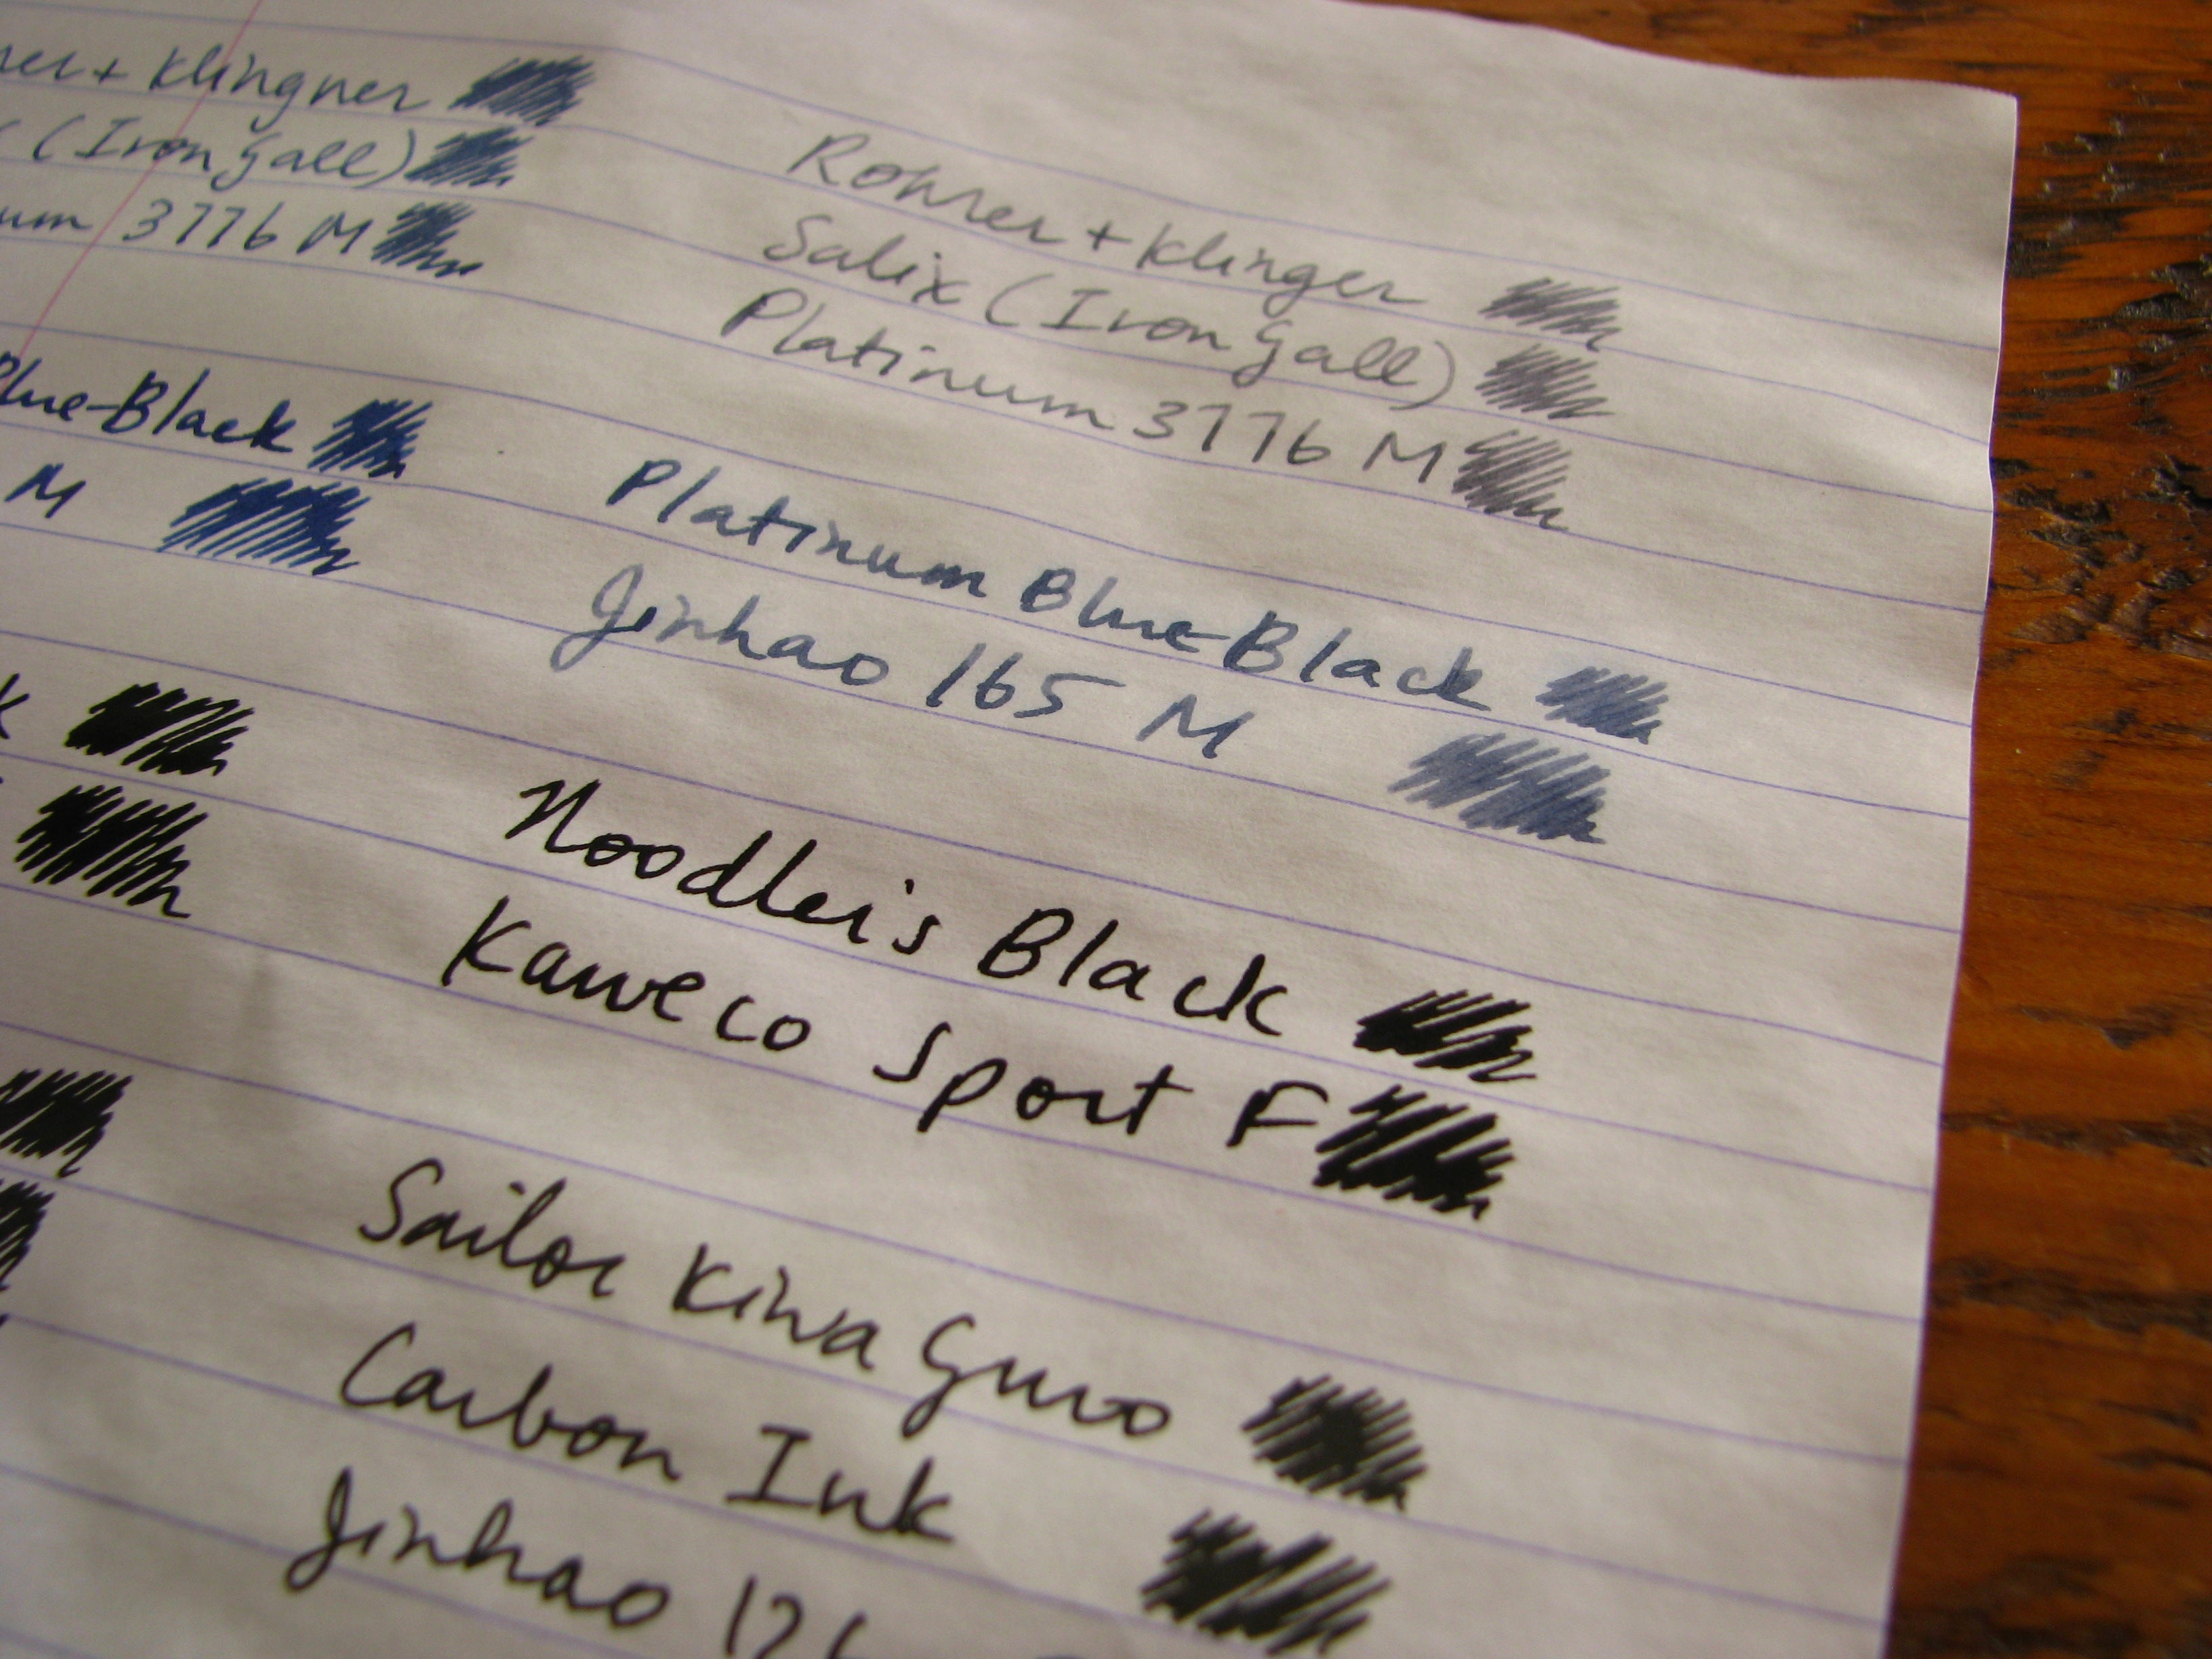 + Klingner
(Iron Gall)
3776 M
Blue-Black
M
Rohrer + Klinger
Salix (Iron Gall)
Platinum 3776 M
Platinum Blue-Black
Jinhao 165 M
Noodler's Black
Kaweco Sport F
Sailor Kiwa Guro
Carbon Ink
Jinhao